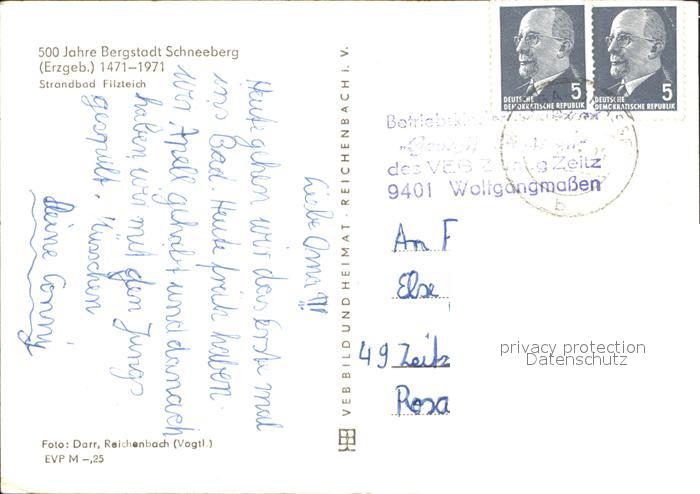 500 Jahre Bergstadt Schneeberg
(Erzgeb.) 1471–1971
Strandbad Filzteich
Liebe Oma!!!
Heute gehen wir das erste mal
ins Bad. Heute früh haben
wir Apell gehabt und danach
haben wir mit den Jungs
gespielt. Küsschen
Deine Conny
Foto: Darr, Reichenbach (Vogtl.)
EVP M –,25
VEB BILD UND HEIMAT · REICHENBACH I. V.
5
DEUTSCHE
DEMOKRATISCHE REPUBLIK
5
DEUTSCHE
DEMOKRATISCHE REPUBLIK
des VEB Zeitz
9401 Wolfgangmaßen
b
An F
Else
49 Zeitz
Rosa
privacy protection
Datenschutz